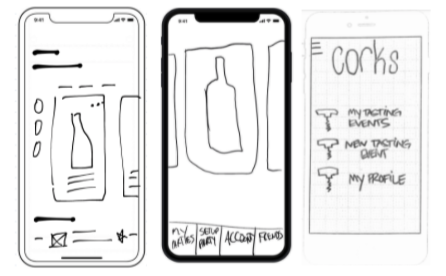 9:41
9:41
MY
PARTIES
SETUP
PARTY
ACCOUNT
FRIEND
Corks
MY TASTING
EVENTS
NEW TASTING
EVENT
MY PROFILE